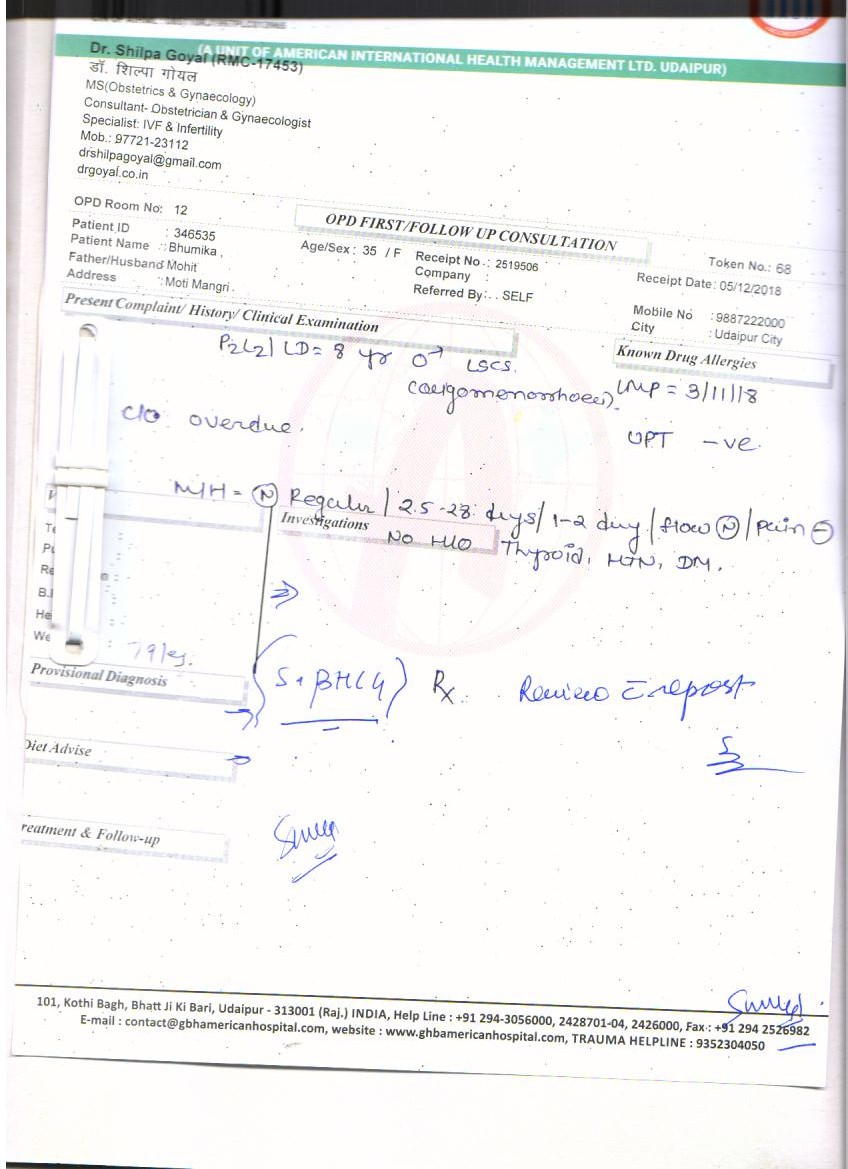 (A UNIT OF AMERICAN INTERNATIONAL HEALTH MANAGEMENT LTD. UDAIPUR)
Dr. Shilpa Goyal (RMC-17453)
डॉ. शिल्पा गोयल
MS(Obstetrics & Gynaecology)
Consultant- Obstetrician & Gynaecologist
Specialist: IVF & Infertility
Mob.: 97721-23112
drshilpagoyal@gmail.com
drgoyal.co.in
OPD Room No: 12
OPD FIRST/FOLLOW UP CONSULTATION
Token No.: 68
Patient ID : 346535
Age/Sex : 35 / F
Receipt No. : 2519506
Receipt Date: 05/12/2018
Patient Name : Bhumika
Company :
Father/Husband Mohit
Referred By: . SELF
Mobile No : 9887222000
Address : Moti Mangri
City : Udaipur City
Present Complaint/ History/ Clinical Examination
Known Drug Allergies
P2L2 / LD = 8 yr LSCS.
LMP = 3/11/18
C/O overdue.
UPT -ve
M/H = (N) Regular / 25-28 days / 1-2 day / flow (N) / pain
Investigations
No H/O Thyroid, HTN, DM.
Te
Pu
Re
B.
He
We
79kg.
Provisional Diagnosis
S. βHCG
Rx
Review c report
Diet Advise
reatment & Follow-up
101, Kothi Bagh, Bhatt Ji Ki Bari, Udaipur - 313001 (Raj.) INDIA, Help Line : +91 294-3056000, 2428701-04, 2426000, Fax : +91 294 2526982
E-mail : contact@gbhamericanhospital.com, website : www.ghbamericanhospital.com, TRAUMA HELPLINE : 9352304050